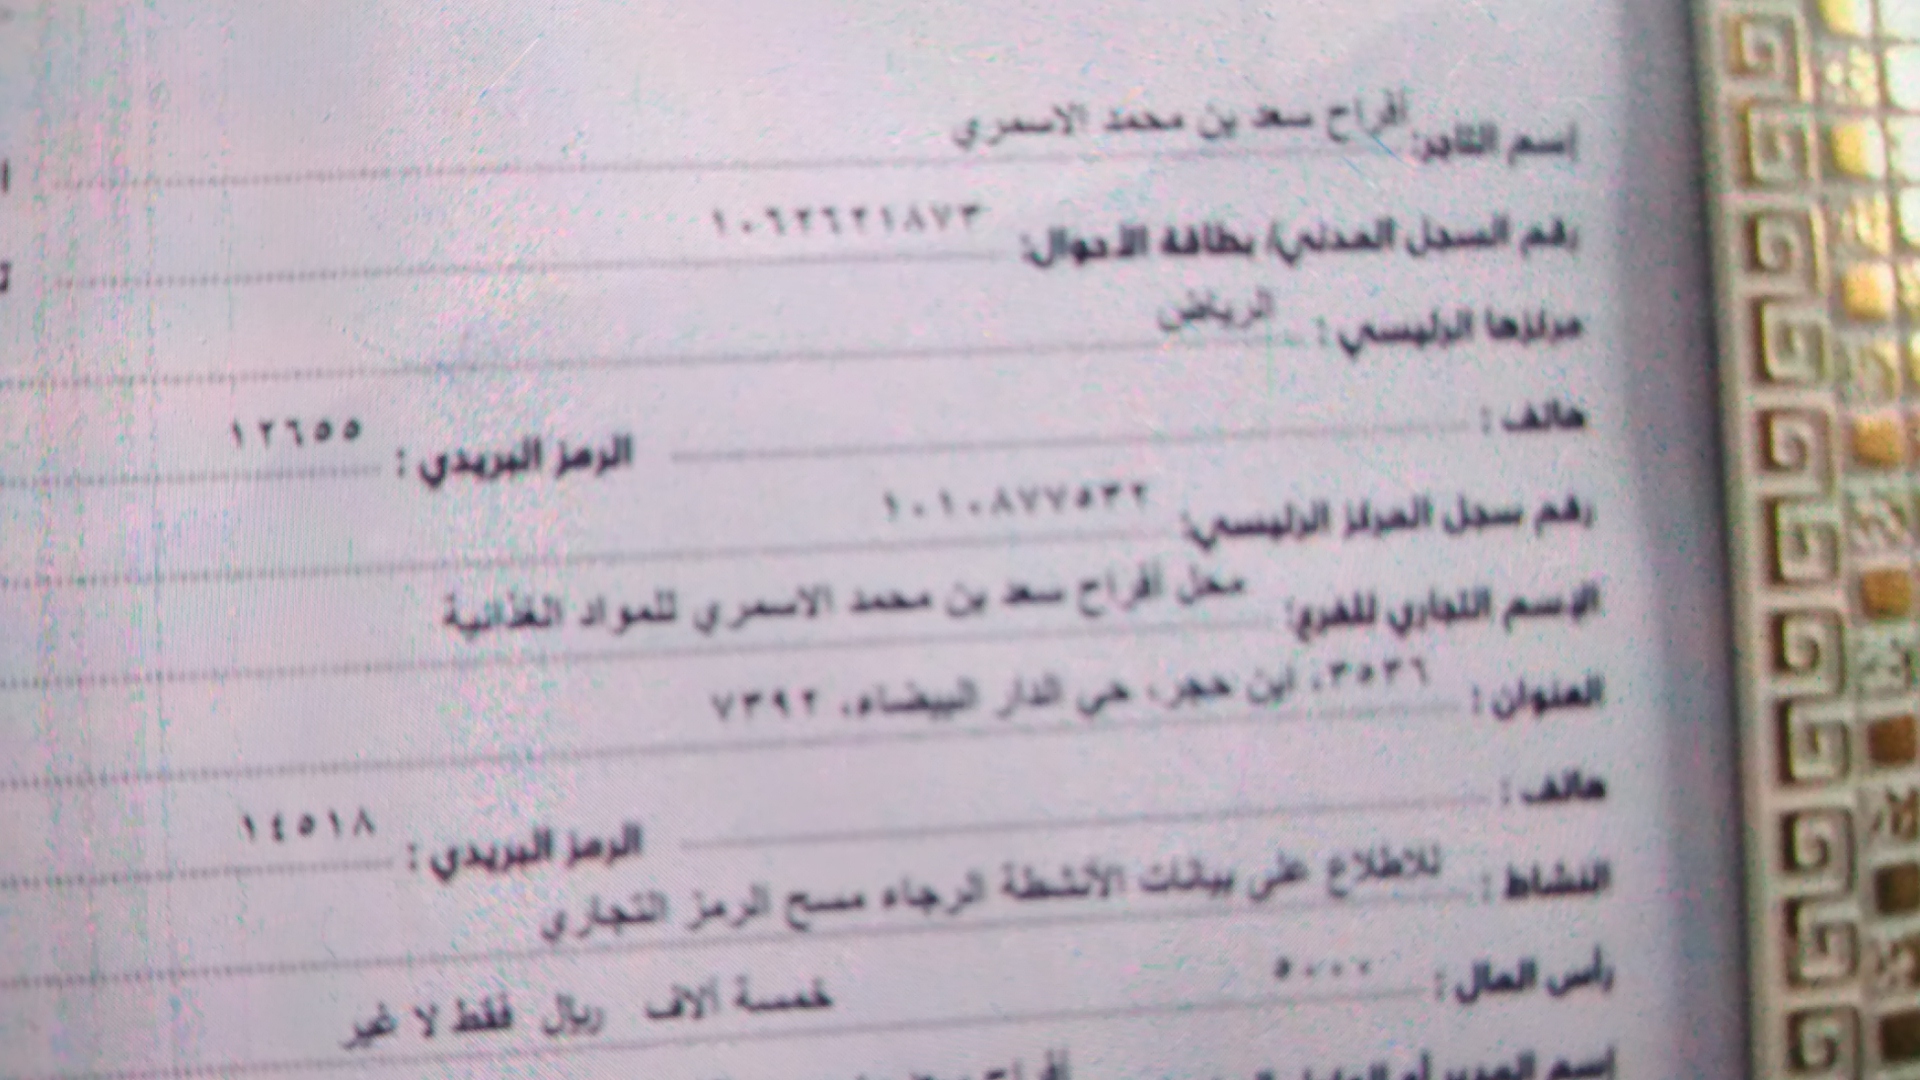 إسم التاجر: أفراح سعد بن محمد الاسمري
رقم السجل المدني/ بطاقة الأحوال: ١٠٦٢٦٢١٨٧٣
مركزها الرئيسي : الرياض
هاتف : الرمز البريدي : ١٢٦٥٥
رقم سجل المركز الرئيسي: ١٠١٠٨٧٧٥٣٢
الإسم التجاري للفرع: محل أفراح سعد بن محمد الاسمري للمواد الغذائية
العنوان : ٣٥٣٦، ابن حجر، حي الدار البيضاء، ٧٣٩٢
هاتف : الرمز البريدي : ١٤٥١٨
النشاط : للاطلاع على بيانات الأنشطة الرجاء مسح الرمز التجاري
رأس المال : ٥٠٠٠ خمسة آلاف ريال فقط لا غير